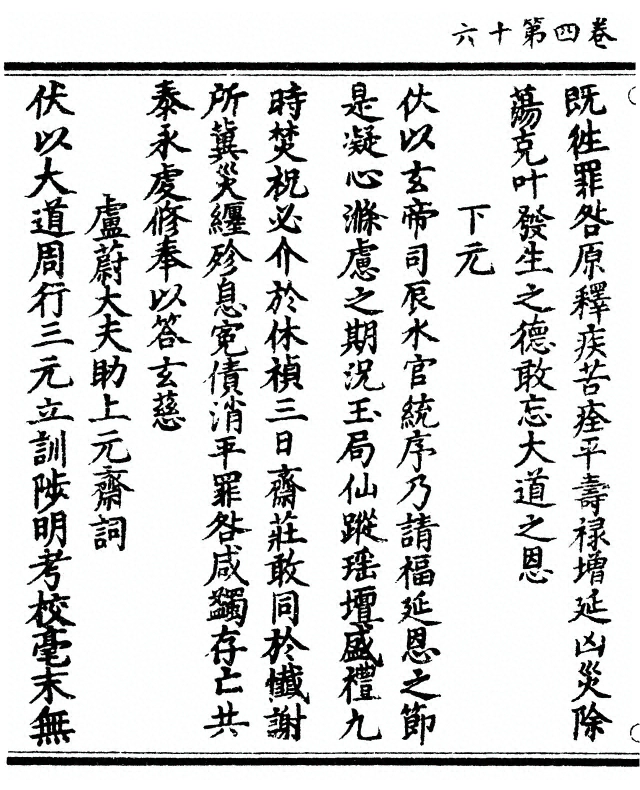 卷四第十六
既往罪咎原釋疾苦痊平壽禄增延凶災除
蕩克叶發生之德敢忘大道之恩
下元
伏以玄帝司辰水官統序乃請福延恩之節
是凝心滌慮之期況玉局仙蹤瑶壇盛禮九
時焚祝必介於休禎三日齋莊敢同於懺謝
所冀災纏殄息寃債消平罪咎咸蠲存亡共
泰永虔修奉以答玄慈
盧蔚大夫助上元齋詞
伏以大道周行三元立訓陟明考校毫末無